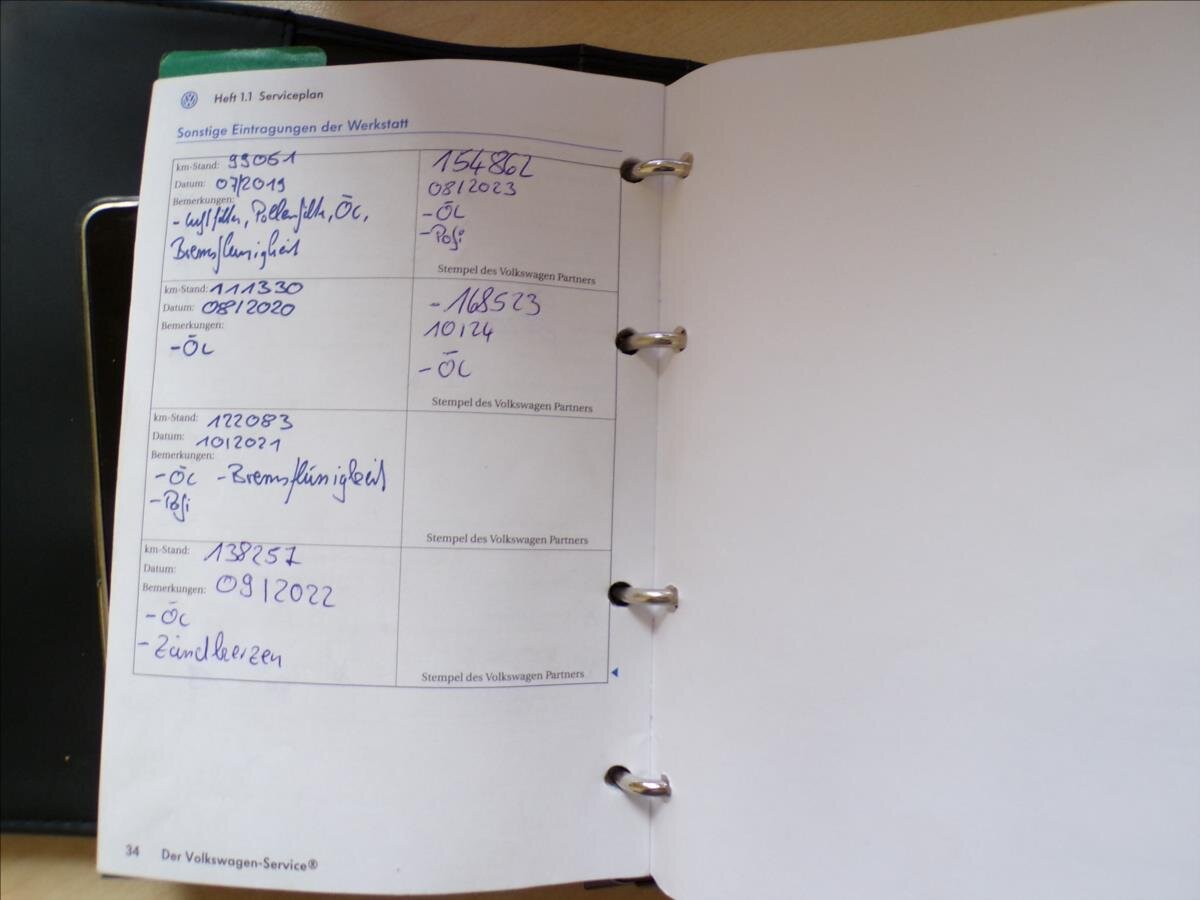 Heft 1.1 Serviceplan
Sonstige Eintragungen der Werkstatt
km-Stand: 99051
Datum: 07/2019
Bemerkungen:
- Luftfilter, Pollenfilte, ÖL,
Bremsflüssigkeit
154862
08/2023
- ÖL
- Pofi
Stempel des Volkswagen Partners
km-Stand: 111330
Datum: 08/2020
Bemerkungen:
- ÖL
- 168523
10/24
- ÖL
Stempel des Volkswagen Partners
km-Stand: 122083
Datum: 10/2021
Bemerkungen:
- ÖL - Bremsflüssigkeit
- Pofi
Stempel des Volkswagen Partners
km-Stand: 138257
Datum:
Bemerkungen: 09/2022
- ÖL
- Zündkerzen
Stempel des Volkswagen Partners
34 Der Volkswagen-Service®